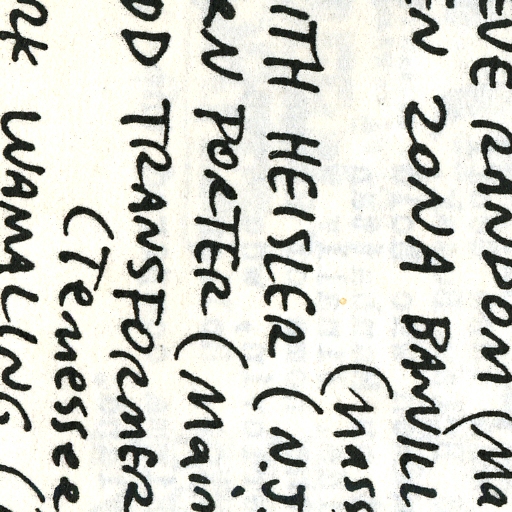 EVE RANDOM (Ma
EN ZONA BANVILL
(Mass
ITH HEISLER (N.J.
EN PORTER (Main
OD TRANSFORMER
(Tenessee
ork WAMALING (